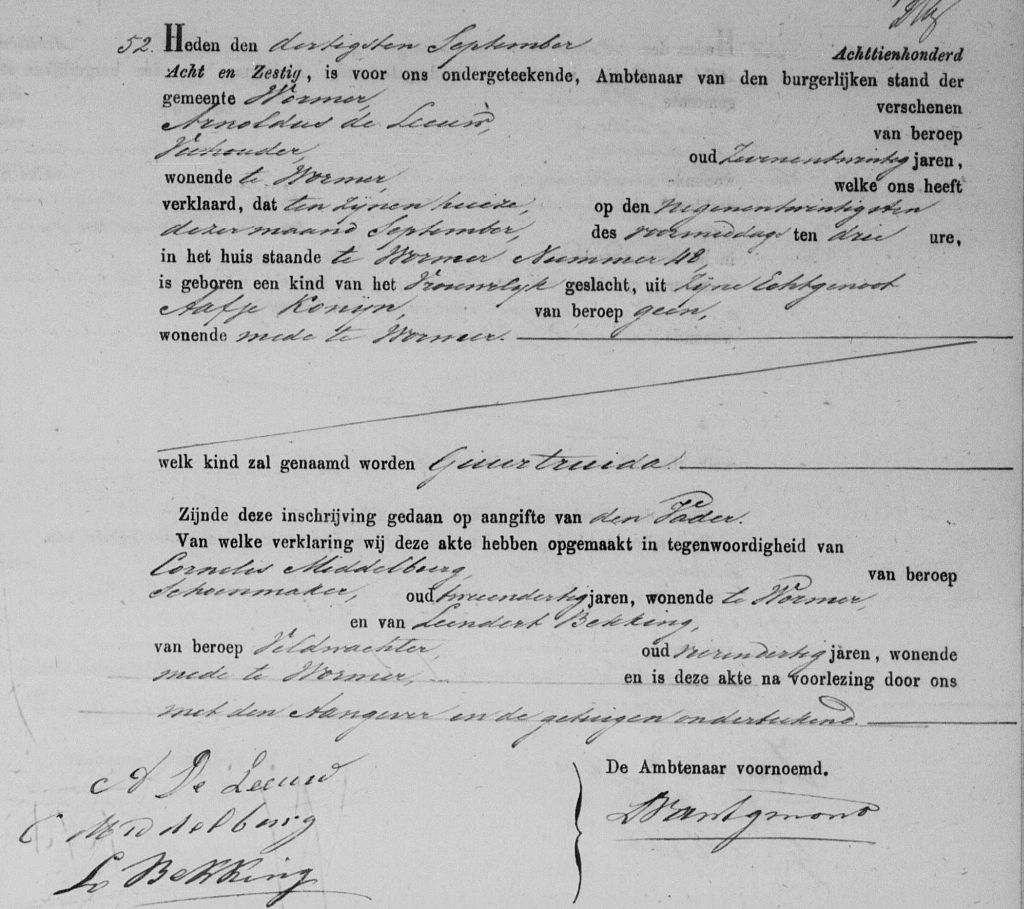 52. Heden den dertigsten September Achttienhonderd
Acht en Zestig, is voor ons ondergeteekende, Ambtenaar van den burgerlijken stand der
gemeente Wormer, verschenen
Arnoldus de Leeuw, van beroep
Veehouder, oud Zevenentwintig jaren,
wonende te Wormer, welke ons heeft
verklaard, dat ten Zijnen huize, op den negenentwintigsten
dezer maand September, des voormiddags ten drie ure,
in het huis staande te Wormer Nummer 48,
is geboren een kind van het Vrouwelijk geslacht, uit Zijne Echtgenoot
Aafje Konijn, van beroep geen,
wonende mede te Wormer.
welk kind zal genaamd worden Geertruida.
Zijnde deze inschrijving gedaan op aangifte van den Vader.
Van welke verklaring wij deze akte hebben opgemaakt in tegenwoordigheid van
Cornelis Middelburg, van beroep
Schoenmaker, oud tweeendertig jaren, wonende te Wormer,
en van Leendert Bekking,
van beroep Veldwachter, oud vierendertig jaren, wonende
mede te Wormer, en is deze akte na voorlezing door ons
met den Aangever en de getuigen onderteekend.
A De Leeuw De Ambtenaar voornoemd.
C Middelburg
L Bekking